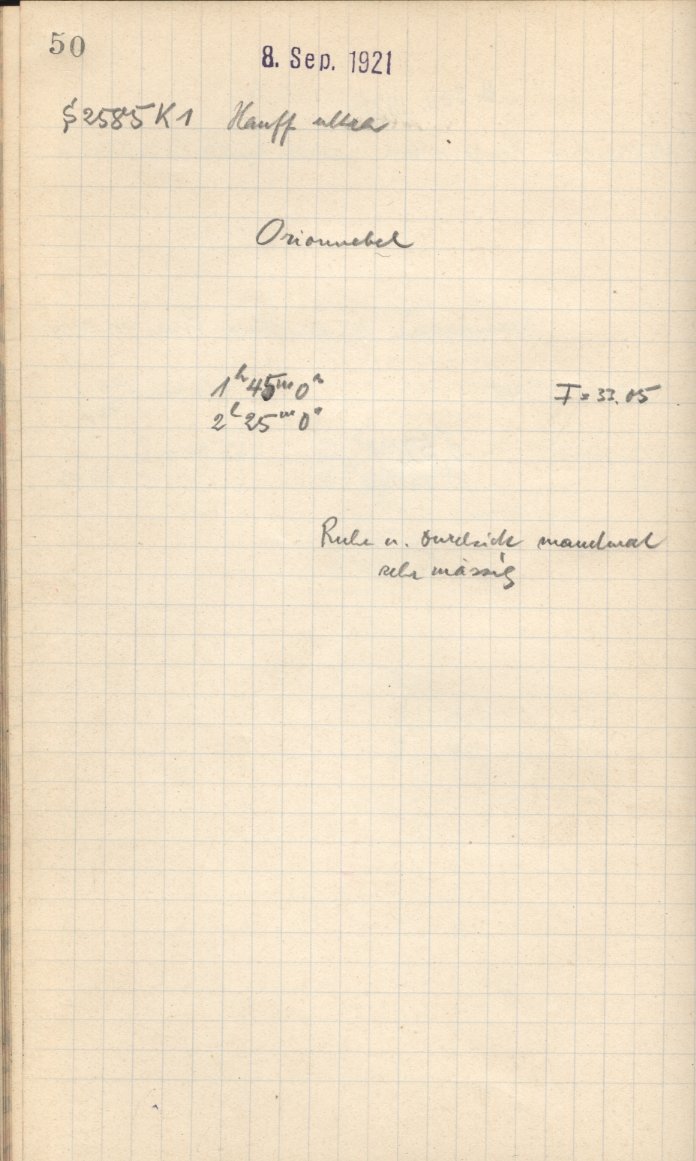 50
8. Sep. 1921
2585 K 1 Hauff ultra
Orionnebel
1ʰ 45ᵐ 0ˢ
2ʰ 25ᵐ 0ˢ
I = 33.05
Ruhe u. Durchsicht manchmal
sehr mässig